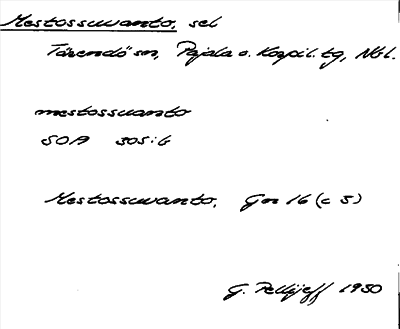 Mestossuvanto, sel
Tärendö sn, Pajala o. Korpil. tg, Nbl.
mestossuanto
SOA 305:6
Mestossuvanto, Gn 16 (c 5)
G. Pellijeff 1980